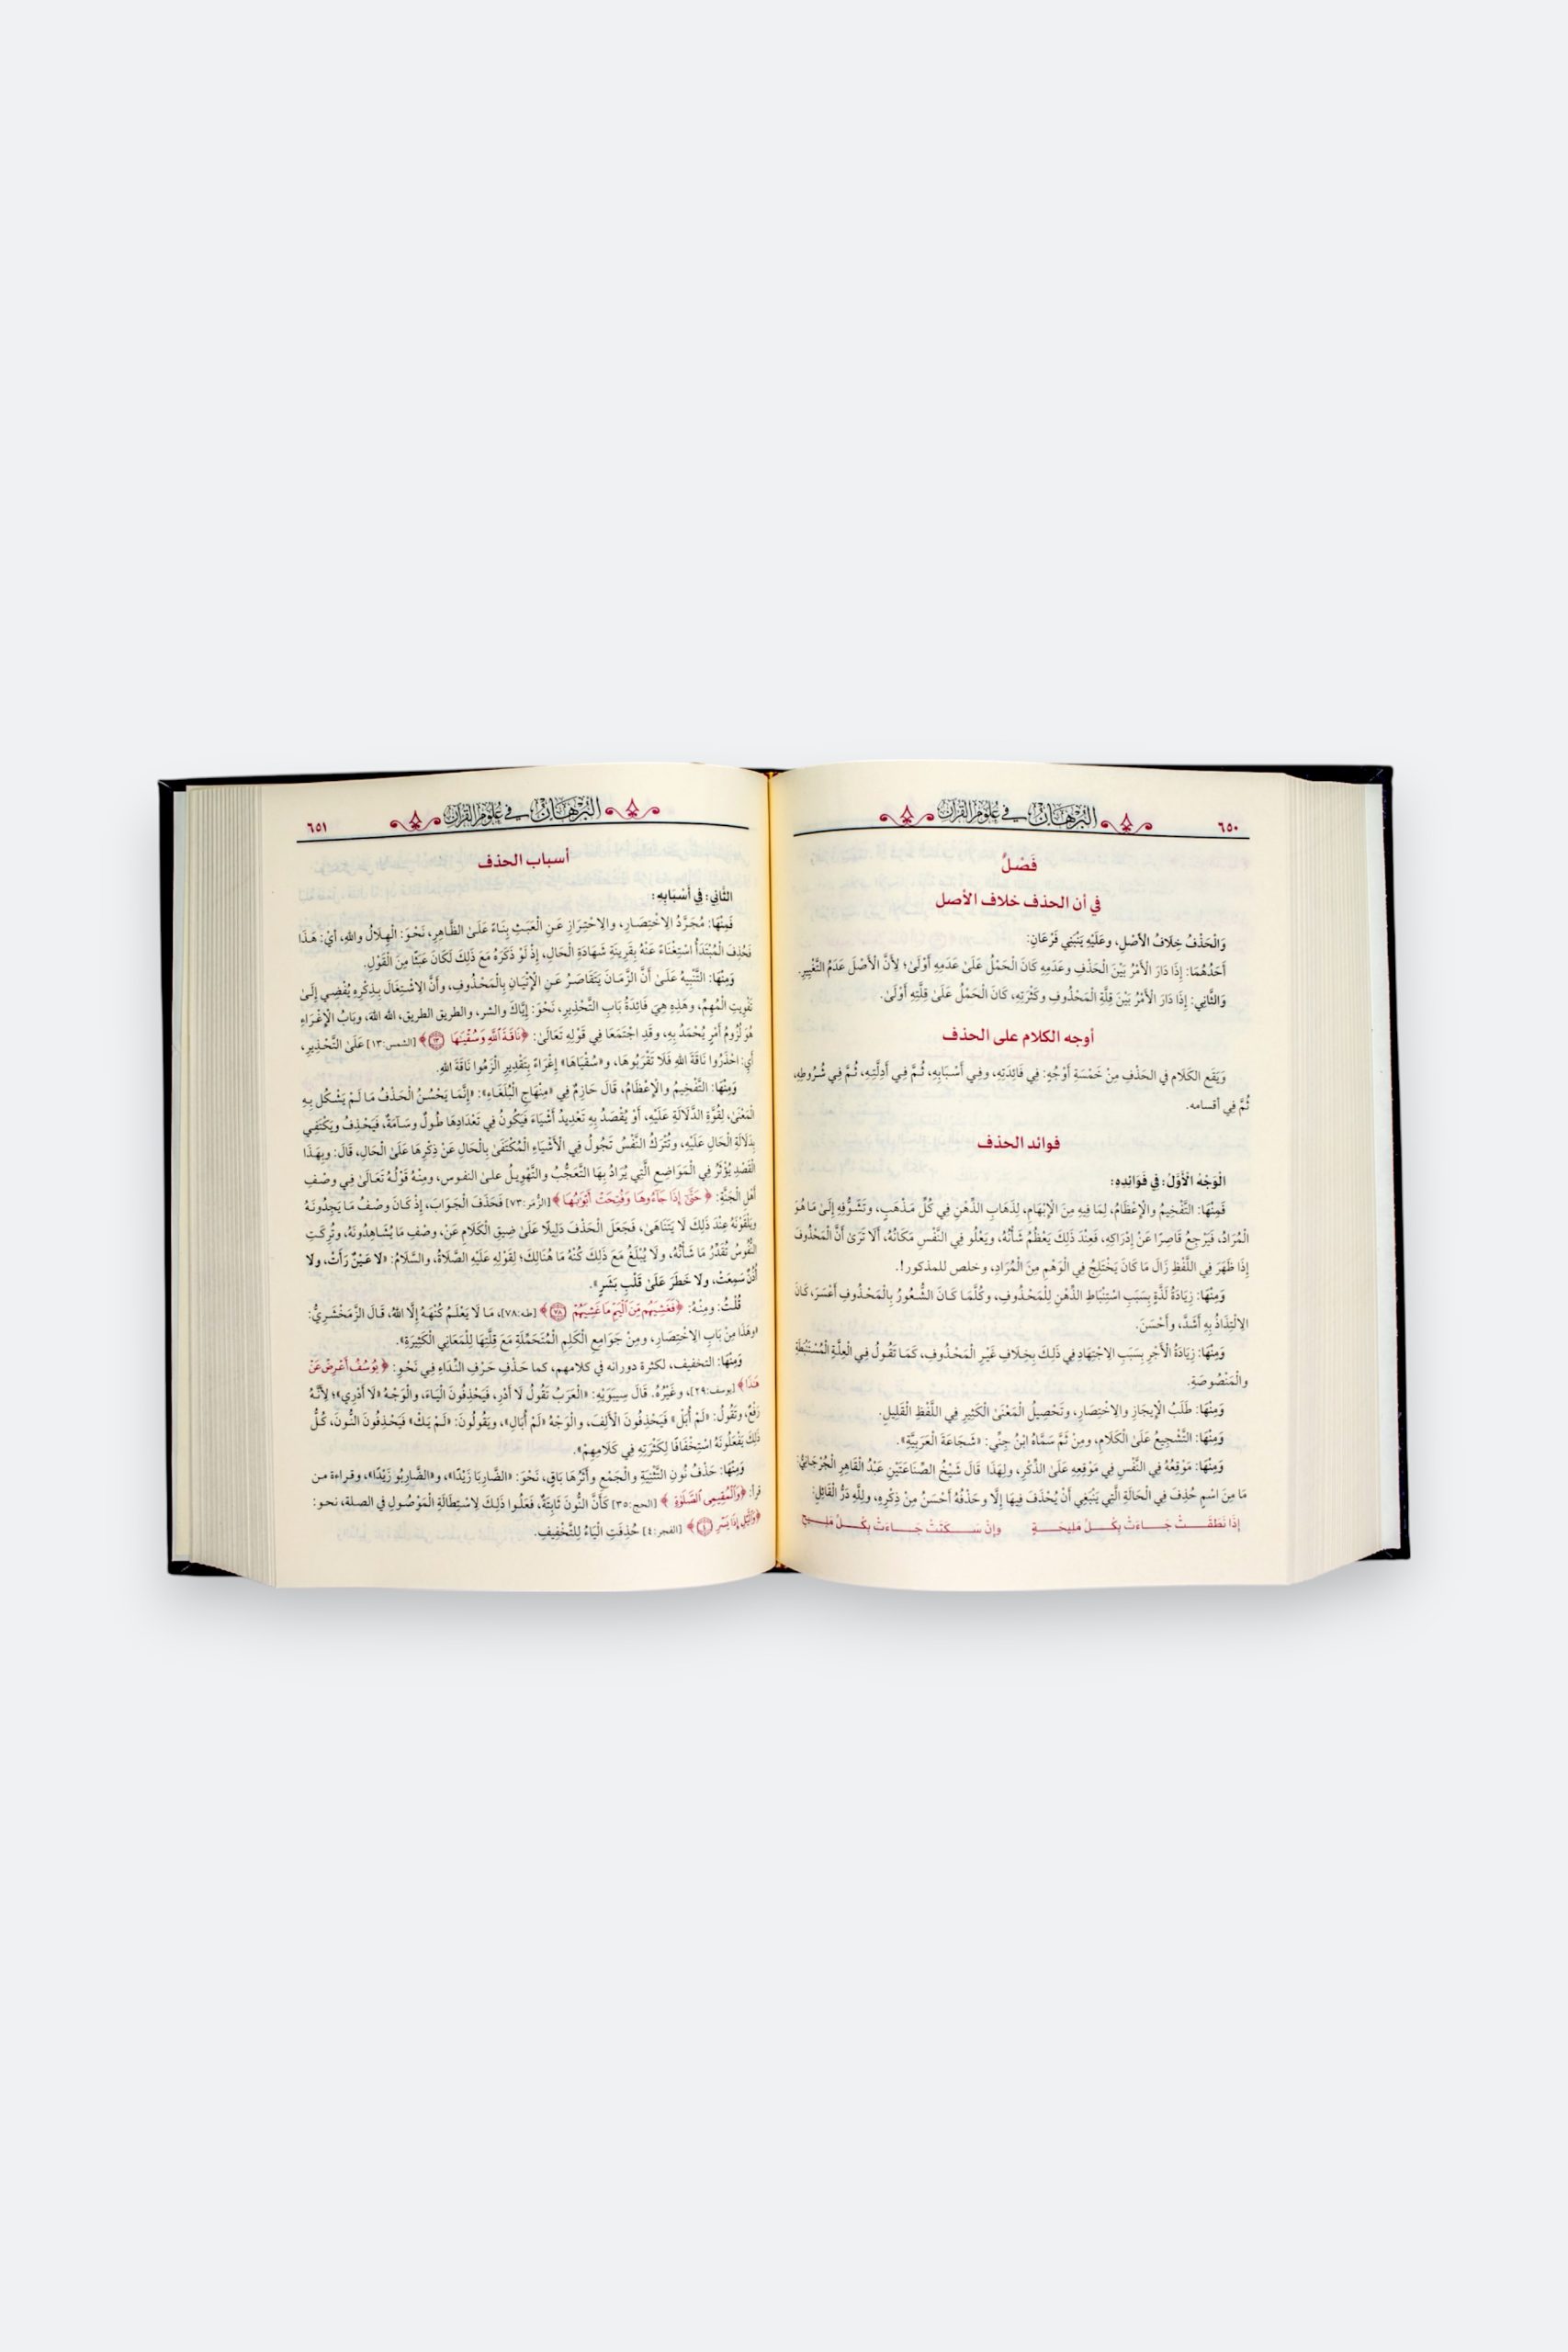 ٦٥٠
البرهان في علوم القرآن
فَصْلٌ
في أن الحذف خلاف الأصل
وَالْحَذْفُ خِلَافُ الْأَصْلِ، وعَلَيْهِ يَنْبَنِي فَرْعَانِ:
أَحَدُهُمَا: إِذَا دَارَ الْأَمْرُ بَيْنَ الْحَذْفِ وعَدَمِهِ كَانَ الْحَمْلُ عَلَىٰ عَدَمِهِ أَوْلَىٰ؛ لِأَنَّ الْأَصْلَ عَدَمُ التَّغْيِيرِ.
وَالثَّانِي: إِذَا دَارَ الْأَمْرُ بَيْنَ قِلَّةِ الْمَحْذُوفِ وكَثْرَتِهِ، كَانَ الْحَمْلُ عَلَىٰ قِلَّتِهِ أَوْلَىٰ.
أوجه الكلام على الحذف
وَيَقَع الكَلَام في الحَذْفِ مِنْ خَمْسَةِ أَوْجُهٍ: فِي فَائِدَتِهِ، وفِي أَسْبَابِهِ، ثُمَّ فِي أَدِلَّتِهِ، ثُمَّ فِي شُرُوطِهِ،
ثُمَّ فِي أقسامه.
فوائد الحذف
الْوَجْهُ الْأَوَّلُ: فِي فَوَائِدِهِ:
فَمِنْهَا: التَّفْخِيمُ والْإِعْظَامُ، لِمَا فِيهِ مِنَ الْإِبْهَامِ، لِذَهَابِ الذِّهْنِ فِي كُلِّ مَذْهَبٍ، وتَشَوُّفِهِ إِلَىٰ مَا هُوَ
الْمُرَادُ، فَيَرْجِعُ قَاصِرًا عَنْ إِدْرَاكِهِ، فَعِنْدَ ذَلِكَ يَعْظُمُ شَأْنُهُ، ويَعْلُو فِي النَّفْسِ مَكَانُهُ، أَلَا تَرَىٰ أَنَّ الْمَحْذُوفَ
إِذَا ظَهَرَ فِي اللَّفْظِ زَالَ مَا كَانَ يَخْتَلِجُ فِي الْوَهْمِ مِنَ الْمُرَادِ، وخلص للمذكور!.
وَمِنْهَا: زِيَادَةُ لَذَّةٍ بِسَبَبِ اسْتِنْبَاطِ الذِّهْنِ لِلْمَحْذُوفِ، وكُلَّمَا كَانَ الشُّعُورُ بِالْمَحْذُوفِ أَعْسَرَ، كَانَ
الِالْتِذَاذُ بِهِ أَشَدَّ، وأَحْسَنَ.
وَمِنْهَا: زِيَادَةُ الْأَجْرِ بِسَبَبِ الِاجْتِهَادِ فِي ذَلِكَ بِخِلَافِ غَيْرِ الْمَحْذُوفِ، كَمَا تَقُولُ فِي الْعِلَّةِ الْمُسْتَنْبَطَةِ
والْمَنْصُوصَةِ.
وَمِنْهَا: طَلَبُ الْإِيجَازِ والِاخْتِصَارِ، وتَحْصِيلُ الْمَعْنَىٰ الْكَثِيرِ فِي اللَّفْظِ الْقَلِيلِ.
وَمِنْهَا: التَّشْجِيعُ عَلَىٰ الْكَلَامِ، ومِنْ ثَمَّ سَمَّاهُ ابْنُ جِنِّي: «شَجَاعَةَ الْعَرَبِيَّةِ».
وَمِنْهَا: مَوْقِعُهُ فِي النَّفْسِ فِي مَوْقِعِهِ عَلَىٰ الذِّكْرِ، ولِهَذَا قَالَ شَيْخُ الصِّنَاعَتَيْنِ عَبْدُ الْقَاهِرِ الْجُرْجَانِيُّ:
مَا مِنَ اسْمٍ حُذِفَ فِي الْحَالَةِ الَّتِي يَنْبَغِي أَنْ يُحْذَفَ فِيهَا إِلَّا وحَذْفُهُ أَحْسَنُ مِنْ ذِكْرِهِ، ولِلَّهِ دَرُّ الْقَائِلِ:
إِذَا نَطَقَتْ جَاءَتْ بِكُلِّ مَلِيحَةٍ وإنْ سَكَتَتْ جَاءَتْ بِكُلِّ مَلِيحِ
٦٥١
البرهان في علوم القرآن
أسباب الحذف
الثَّانِي: فِي أَسْبَابِهِ:
فَمِنْهَا: مُجَرَّدُ الِاخْتِصَارِ، والِاحْتِرَازِ عَنِ الْعَبَثِ بِنَاءً عَلَىٰ الظَّاهِرِ، نَحْوَ: الْهِلَالُ واللهِ، أيْ: هَذَا
فَحُذِفَ الْمُبْتَدَأُ اسْتِغْنَاءً عَنْهُ بِقَرِينَةِ شَهَادَةِ الْحَالِ، إِذْ لَوْ ذَكَرَهُ مَعَ ذَلِكَ لَكَانَ عَبَثًا مِنَ الْقَوْلِ.
وَمِنْهَا: التَّنْبِيهُ عَلَىٰ أَنَّ الزَّمَانَ يَتَقَاصَرُ عَنِ الْإِتْيَانِ بِالْمَحْذُوفِ، وأَنَّ الِاشْتِغَالَ بِذِكْرِهِ يُفْضِي إِلَىٰ
تَفْوِيتِ الْمُهِمِّ، وهَذِهِ هِيَ فَائِدَةُ بَابِ التَّحْذِيرِ، نَحْوَ: إِيَّاكَ والشر، والطريق الطريق، الله الله، وبَابُ الْإِغْرَاءِ
هُوَ لُزُومُ أَمْرٍ يُحْمَدُ بِهِ، وقَدِ اجْتَمَعَا فِي قَوْلِهِ تَعَالَىٰ: ﴿نَاقَةَ ٱللَّهِ وَسُقْيَٰهَا ١٣﴾ [الشمس: ١٣] عَلَىٰ التَّحْذِيرِ،
أَيِ: احْذَرُوا نَاقَةَ اللهِ فَلَا تَقْرَبُوهَا، و«سُقْيَاهَا» إِغْرَاءٌ بِتَقْدِيرِ الْزَمُوا نَاقَةَ اللهِ.
وَمِنْهَا: التَّفْخِيمُ والْإِعْظَامُ، قَالَ حَازِمٌ فِي «مِنْهَاجِ الْبُلَغَاءِ»: «إِنَّمَا يَحْسُنُ الْحَذْفُ مَا لَمْ يَشْكُل بِهِ
الْمَعْنَىٰ، لِقُوَّةِ الدَّلَالَةِ عَلَيْهِ، أَوْ يُقْصَدُ بِهِ تَعْدِيدُ أَشْيَاءَ فَيَكُونُ فِي تَعْدَادِهَا طُولٌ وسَآمَةٌ، فَيَحْذِفُ ويَكْتَفِي
بِدَلَالَةِ الْحَالِ عَلَيْهِ، وتُتْرَكُ النَّفْسُ تَجُولُ فِي الْأَشْيَاءِ الْمُكْتَفَىٰ بِالْحَالِ عَنْ ذِكْرِهَا عَلَىٰ الْحَالِ، قَالَ: وبِهَذَا
الْقَصْدِ يُؤَثَّرُ فِي الْمَوَاضِعِ الَّتِي يُرَادُ بِهَا التَّعَجُّبُ والتَّهْوِيلُ علىٰ النفوس، ومِنْهُ قَوْلُهُ تَعَالَىٰ فِي وصْفِ
أَهْلِ الْجَنَّةِ: ﴿حَتَّىٰٓ إِذَا جَآءُوهَا وَفُتِحَتْ أَبْوَٰبُهَا﴾ [الزُّمَر: ٧٣] فَحَذَفَ الْجَوَابَ، إِذْ كَانَ وصْفُ مَا يَجِدُونَهُ
ويَلْقَوْنَهُ عِنْدَ ذَلِكَ لَا يَتَنَاهَىٰ، فَجَعَلَ الْحَذْفَ دَلِيلًا عَلَىٰ ضِيقِ الْكَلَامِ عَنْ، وصْفِ مَا يُشَاهِدُونَهُ، وتُرِكَتِ
النُّفُوسُ تُقَدِّرُ مَا شَأْنُهُ، ولَا يُبْلَغُ مَعَ ذَلِكَ كُنْهُ مَا هُنَالِكَ؛ لِقَوْلِهِ عَلَيْهِ الصَّلَاةُ، والسَّلَامُ: «لَا عَيْنٌ رَأَتْ، ولَا
أُذُنٌ سَمِعَتْ، ولَا خَطَرَ عَلَىٰ قَلْبِ بَشَرٍ».
قُلْتُ: ومِنْهُ: ﴿فَغَشِيَهُم مِّنَ ٱلْيَمِّ مَا غَشِيَهُمْ ٧٨﴾ [طه: ٧٨]، مَا لَا يَعْلَمُ كُنْهَهُ إِلَّا اللهُ، قَالَ الزَّمَخْشَرِيُّ:
«وهَذَا مِنْ بَابِ الِاخْتِصَارِ، ومِنْ جَوَامِعِ الْكَلِمِ الْمُتَحَمِّلَةِ مَعَ قِلَّتِهَا لِلْمَعَانِي الْكَثِيرَةِ».
وَمِنْهَا: التخفيف، لكثرة دورانه في كلامهم، كما حَذْفِ حَرْفِ النِّدَاءِ فِي نَحْوِ: ﴿يُوسُفُ أَعْرِضْ عَنْ
هَٰذَا﴾ [يوسف: ٢٩]، وغَيْرُهُ. قَالَ سِيبَوَيْهِ: «الْعَرَبُ تَقُولُ لَا أَدْرِ، فَيَحْذِفُونَ الْيَاءَ، والْوَجْهُ «لَا أَدْرِي»؛ لِأَنَّهُ
رَفْعٌ، وتَقُولُ: «لَمْ أُبَلْ» فَيَحْذِفُونَ الْأَلِفَ، والْوَجْهُ «لَمْ أُبَالِ»، ويَقُولُونَ: «لَمْ يَكُ» فَيَحْذِفُونَ النُّونَ، كُلُّ
ذَلِكَ يَفْعَلُونَهُ اسْتِخْفَافًا لِكَثْرَتِهِ فِي كَلَامِهِمْ».
وَمِنْهَا: حَذْفُ نُونِ التَّثْنِيَةِ والْجَمْعِ وأَثَرُهَا بَاقٍ، نَحْوَ: «الضَّارِبَا زَيْدًا»، و«الضَّارِبُو زَيْدًا»، وقراءة من
قرأ: ﴿وَٱلْمُقِيمِى ٱلصَّلَوٰةِ﴾ [الحج: ٣٥] كَأَنَّ النُّونَ ثَابِتَةٌ، فَعَلُوا ذَلِكَ لِاسْتِطَالَةِ الْمَوْصُولِ في الصلة، نحو:
﴿وَٱلَّيْلِ إِذَا يَسْرِ ٤﴾ [الفجر: ٤] حُذِفَتِ الْيَاءُ لِلتَّخْفِيفِ.